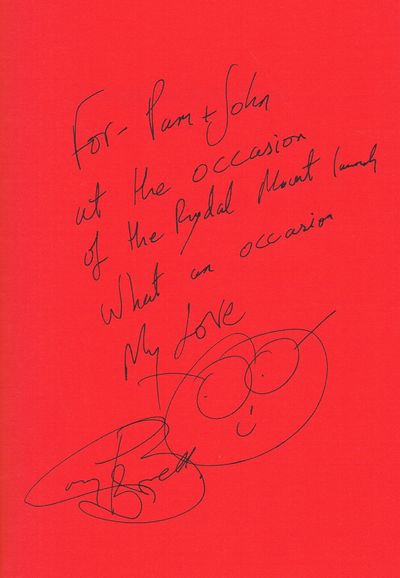 For - Pam + John
at the occasion
of the Rydal Mount launch
What an occasion
My Love